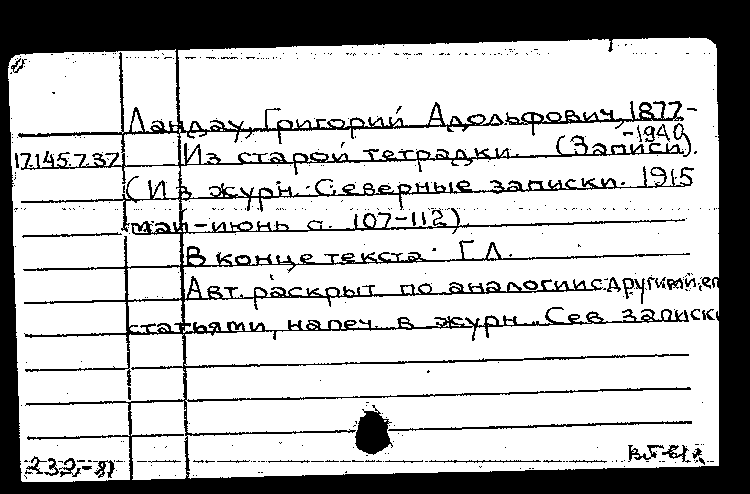 Ландау, Григорий Адольфович, 1877-
-1940
17.145.7.37 Из старой тетрадки. (Записи).
(Из журн. Северные записки. 1915
май-июнь с. 107-112)
В конце текста: Г Л.
Авт. раскрыт по аналогии с другими,
статьями, напеч. в журн. „Сев записки
232,-81